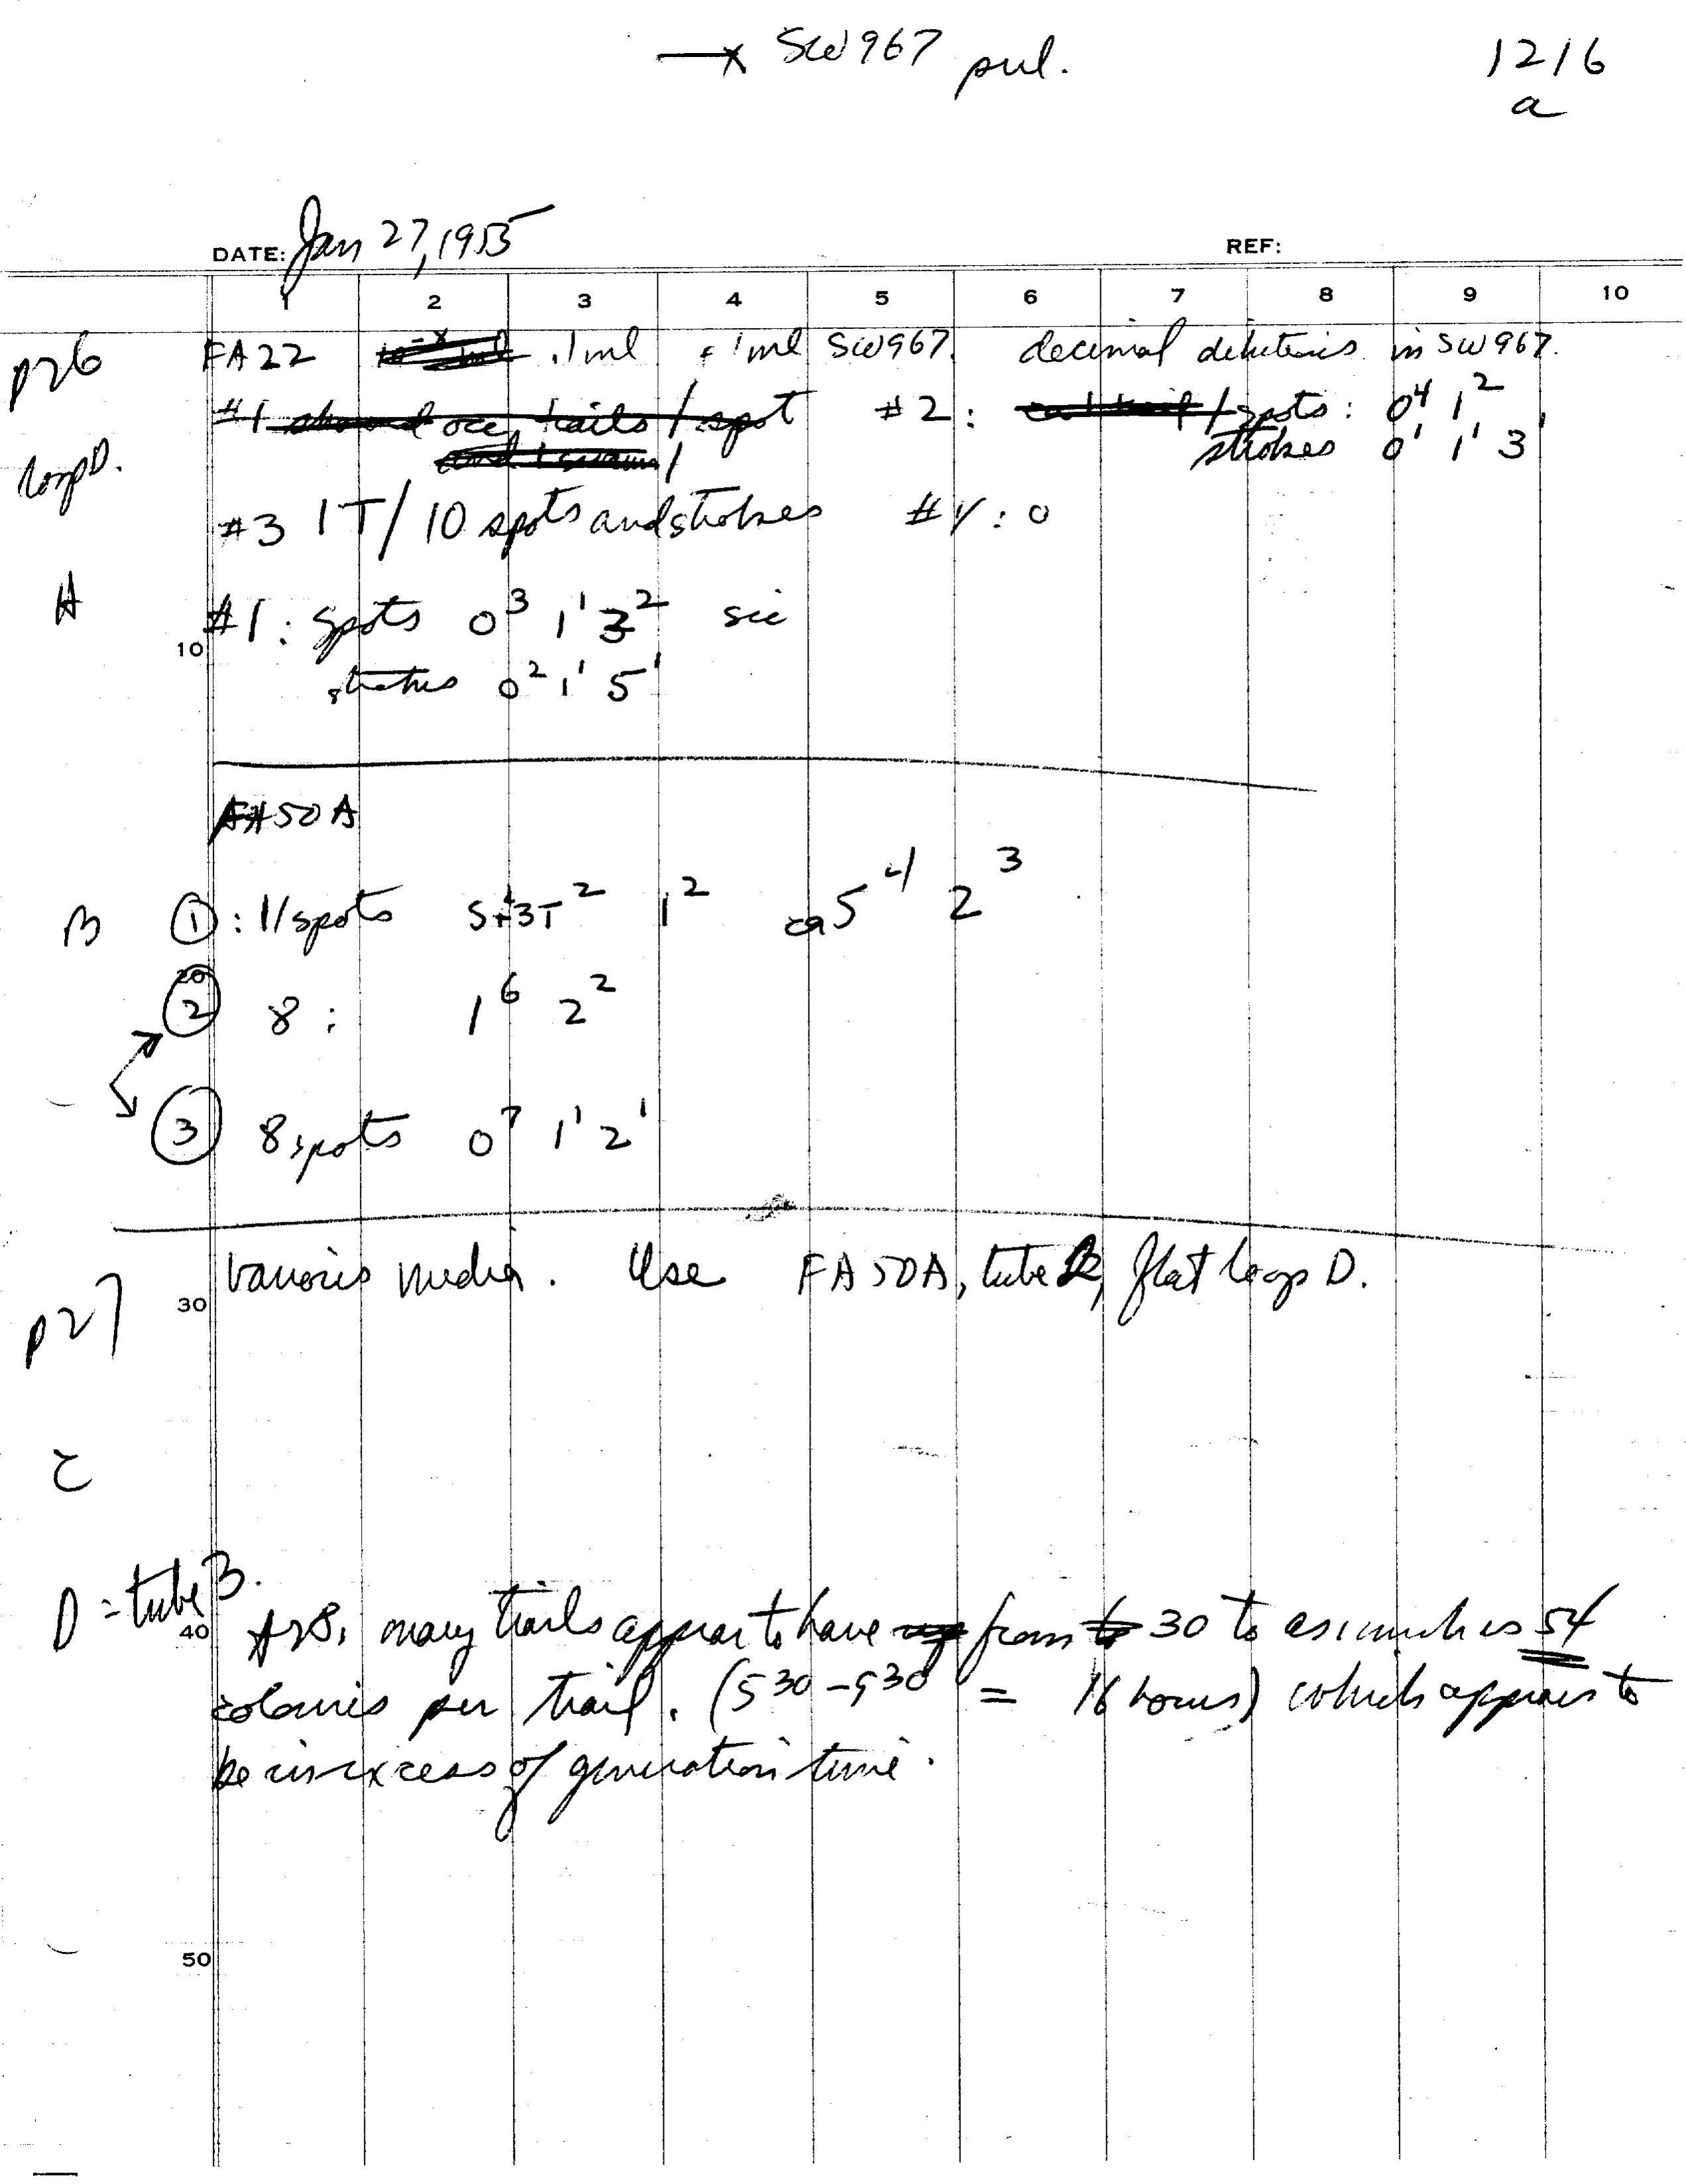 —x SW967 prel. 1216
a
DATE: Jan 27, 1955 REF:
1 2 3 4 5 6 7 8 9 10
p26 FA22 .1ml + 1ml SW967. decimal dilutions in SW967.
#1 #2: / spots: 0⁴ 1²
strokes 0¹ 1¹ 3¹
loop D.
#3 1T/10 spots and strokes #4: 0
A #1: spots 0³ 1¹ 3² sic
10
strokes 0² 1¹ 5¹
FA50A
B ①: 11 spots 5+3T² 1² ca 5⁴ 2³
20
② 8: 1⁶ 2²
③ 8 spots 0⁷ 1¹ 2¹
p27 various media. Use FA50A, tube flat loop D.
30
C
D = tube B.
40 A28, many trails appear to have from 30 to as much as 54
colonies per trail. (5³⁰–9³⁰ = 16 hours) which appears to
be in excess of generation time.
50